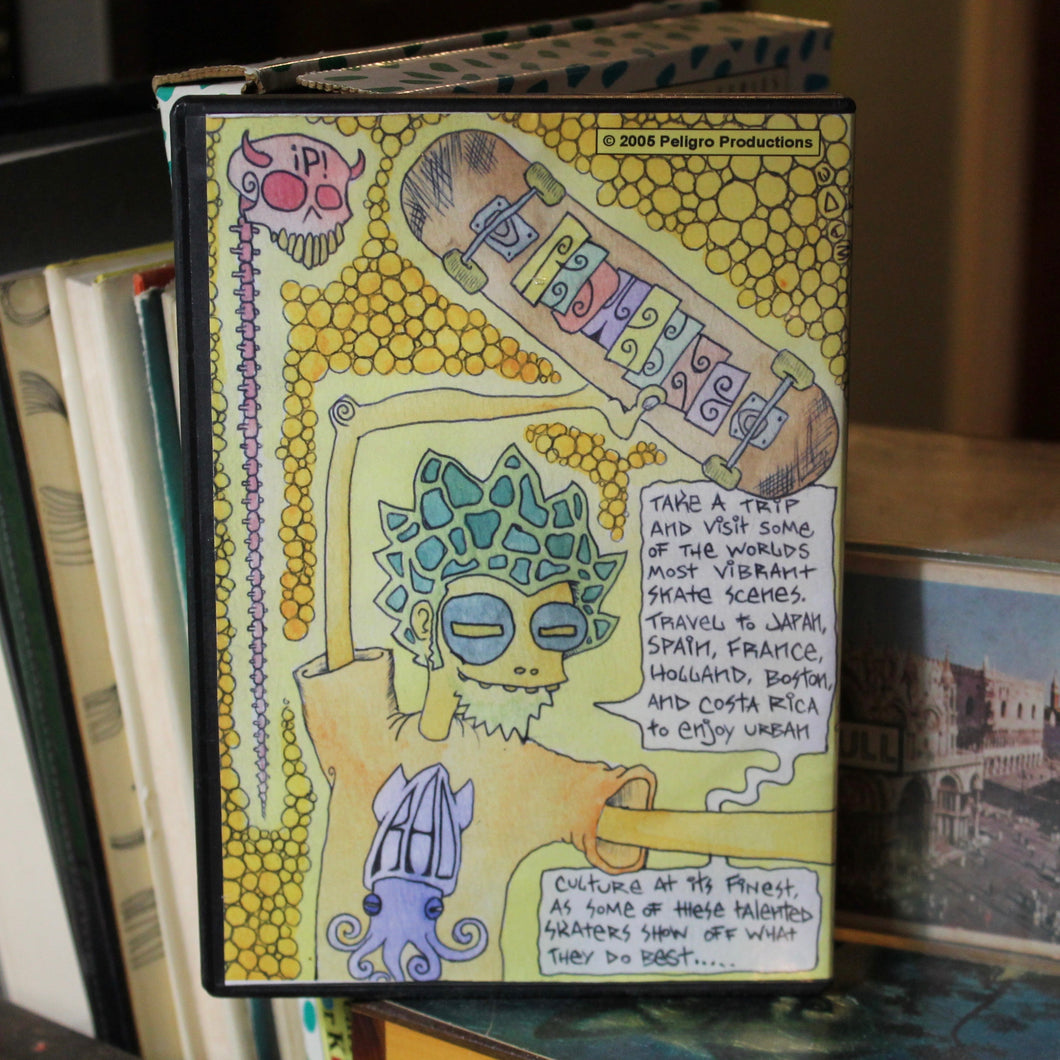 © 2005 Peligro Productions
¡P!
TAKE A TRIP
AND VISIT SOME
OF THE WORLDS
MOST VIBRANT
SKATE SCENES.
TRAVEL TO JAPAN,
SPAIN, FRANCE,
HOLLAND, BOSTON,
AND COSTA RICA
to enjoy URBAN
RAD
CULTURE AT ITS FINEST,
AS SOME OF THESE TALENTED
SKATERS SHOW OFF WHAT
THEY DO BEST.....
ULL